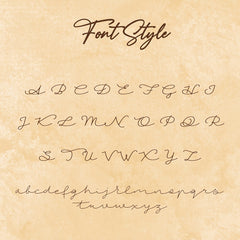 Font Style
A B C D E F G H I
J K L M N O P Q R
S T U V W X Y Z
abcdefghijklmnopqrs
tuvwxyz